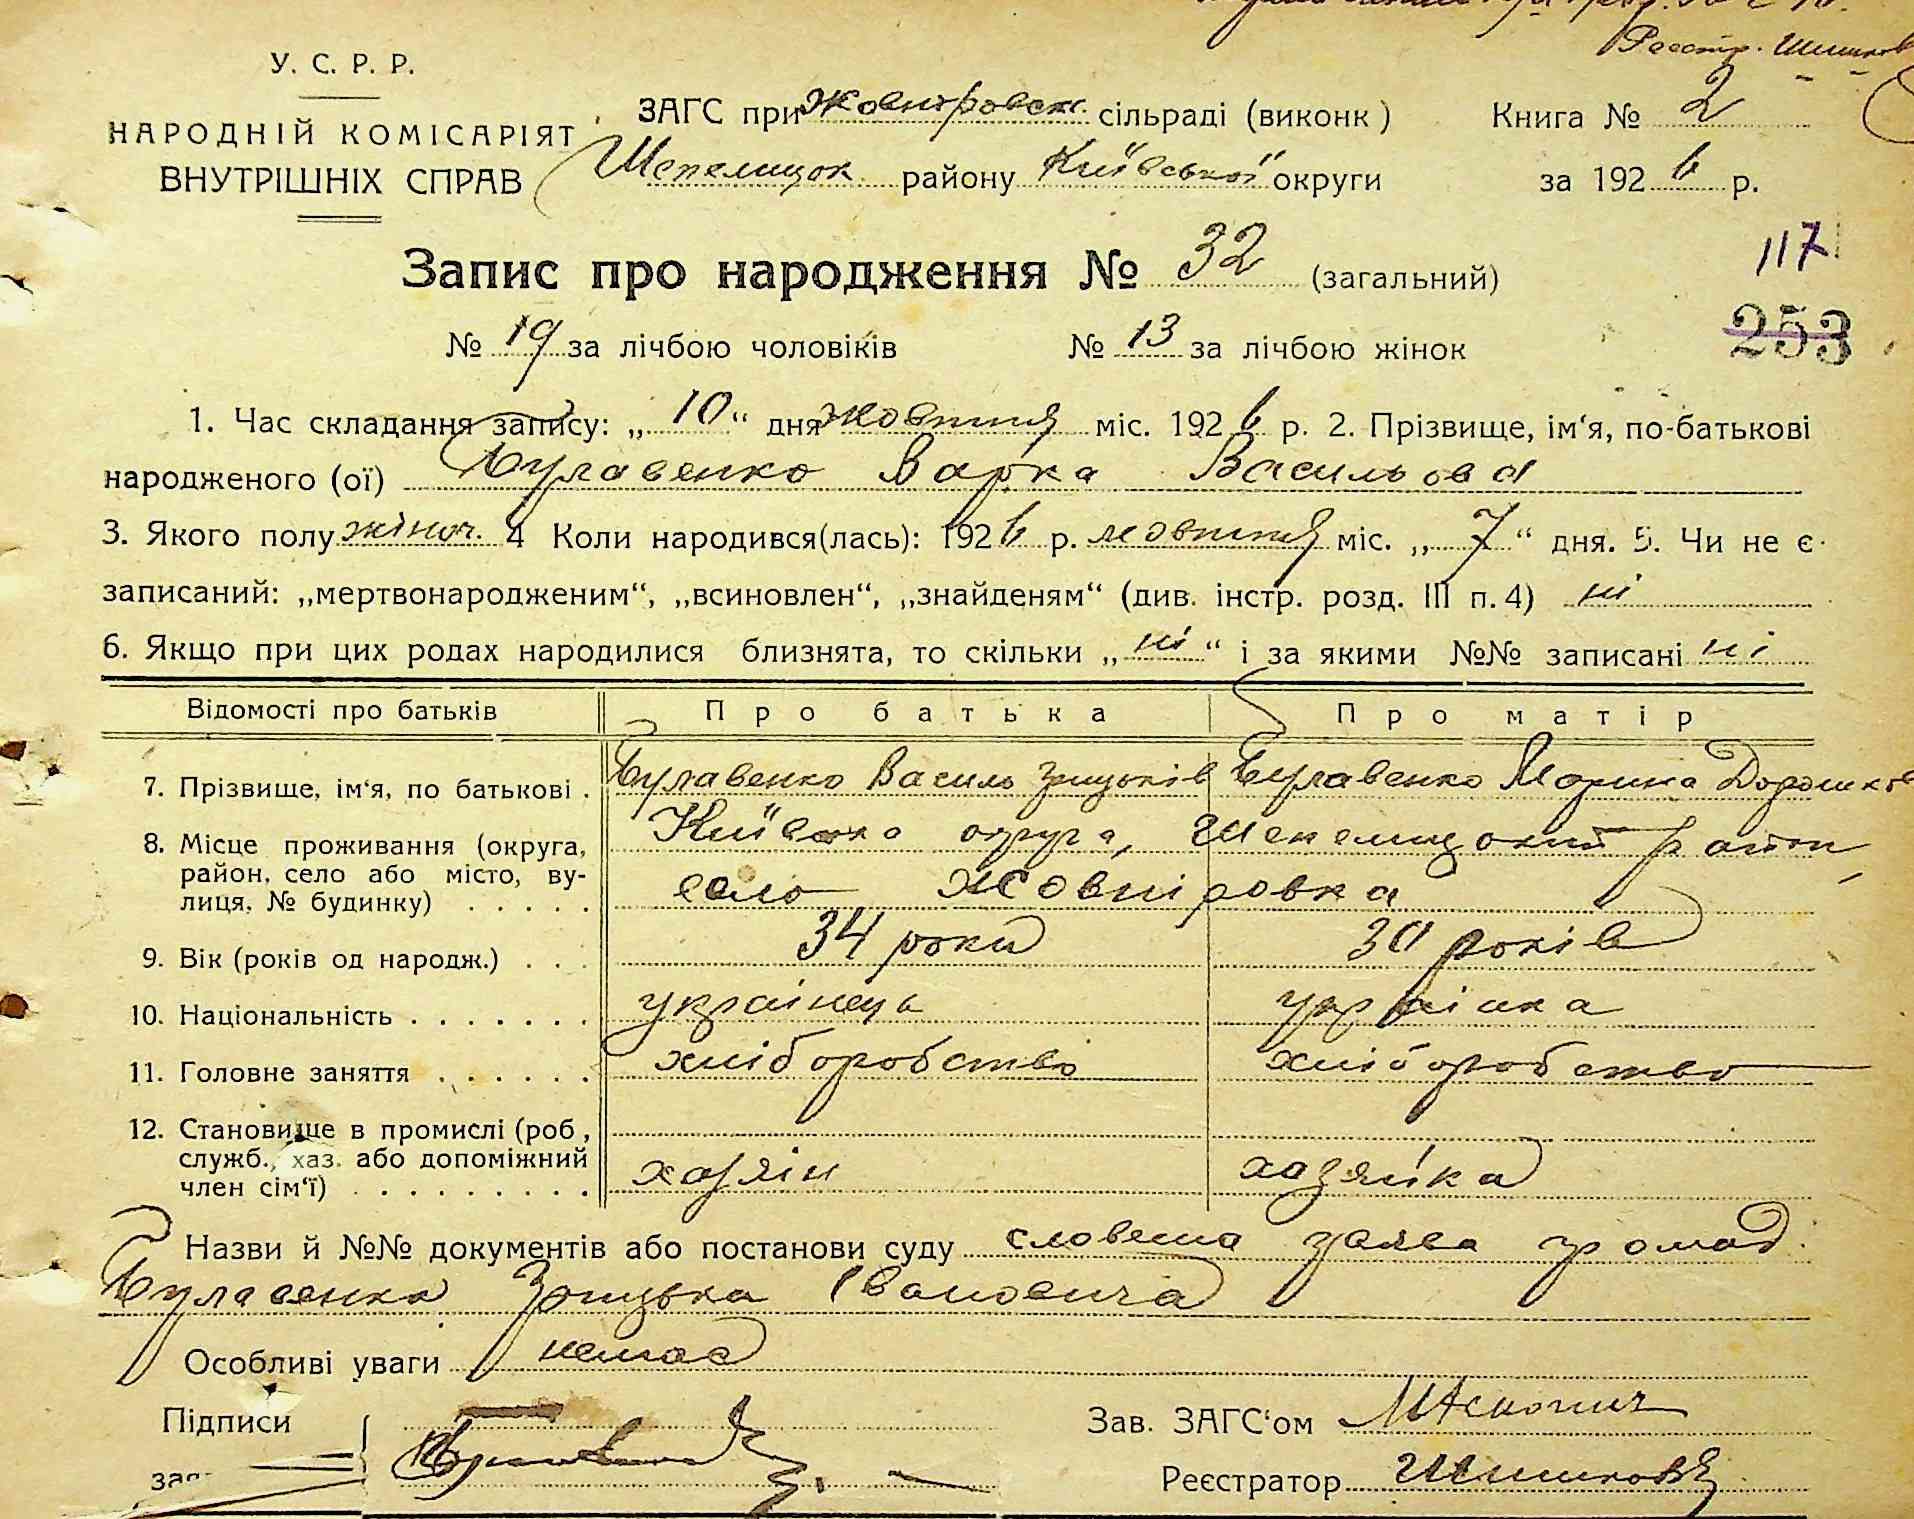 Реєстр. Шишков
У. С. Р. Р.
НАРОДНІЙ КОМІСАРІЯТ
ВНУТРІШНІХ СПРАВ
ЗАГС при Жовніровск. сільраді (виконк) Книга № 2
Шепелицок району Київської округи за 1926 р.
Запис про народження № 32 (загальний)
117
253
№ 19 за лічбою чоловіків № 13 за лічбою жінок
1. Час складання запису: „10“ дня жовтня міс. 1926 р. 2. Прізвище, ім‘я, по-батькові
народженого (ої) Булавенко Варка Васильова
3. Якого полу жіноч. 4 Коли народився(лась): 1926 р. жовтня міс. „7“ дня. 5. Чи не є
записаний: „мертвонародженим“, „всиновлен“, „знайденям“ (див. інстр. розд. III п. 4) ні
6. Якщо при цих родах народилися близнята, то скільки „ні“ і за якими №№ записані ні
Відомості про батьків Про батька Про матір
7. Прізвище, ім‘я, по батькові . Булавенко Василь Грицьків Булавенко Марина Дорошков
8. Місце проживання (округа, район, село або місто, вулиця, № будинку) . . . . . Київска округа, Шепелицкий район,
село Жовніровка
9. Вік (років од народж.) . . . 34 роки 30 років
10. Національність . . . . . . . українець українка
11. Головне заняття . . . . . . хліборобство хліборобство
12. Становище в промислі (роб, служб., хаз. або допоміжний член сім‘ї) . . . . . . . . . хазяін хазяйка
Назви й №№ документів або постанови суду словесна заява громад.
Булавенка Грицька Івановича
Особливі уваги немає
Підписи Зав. ЗАГС‘ом
Реєстратор Шишков